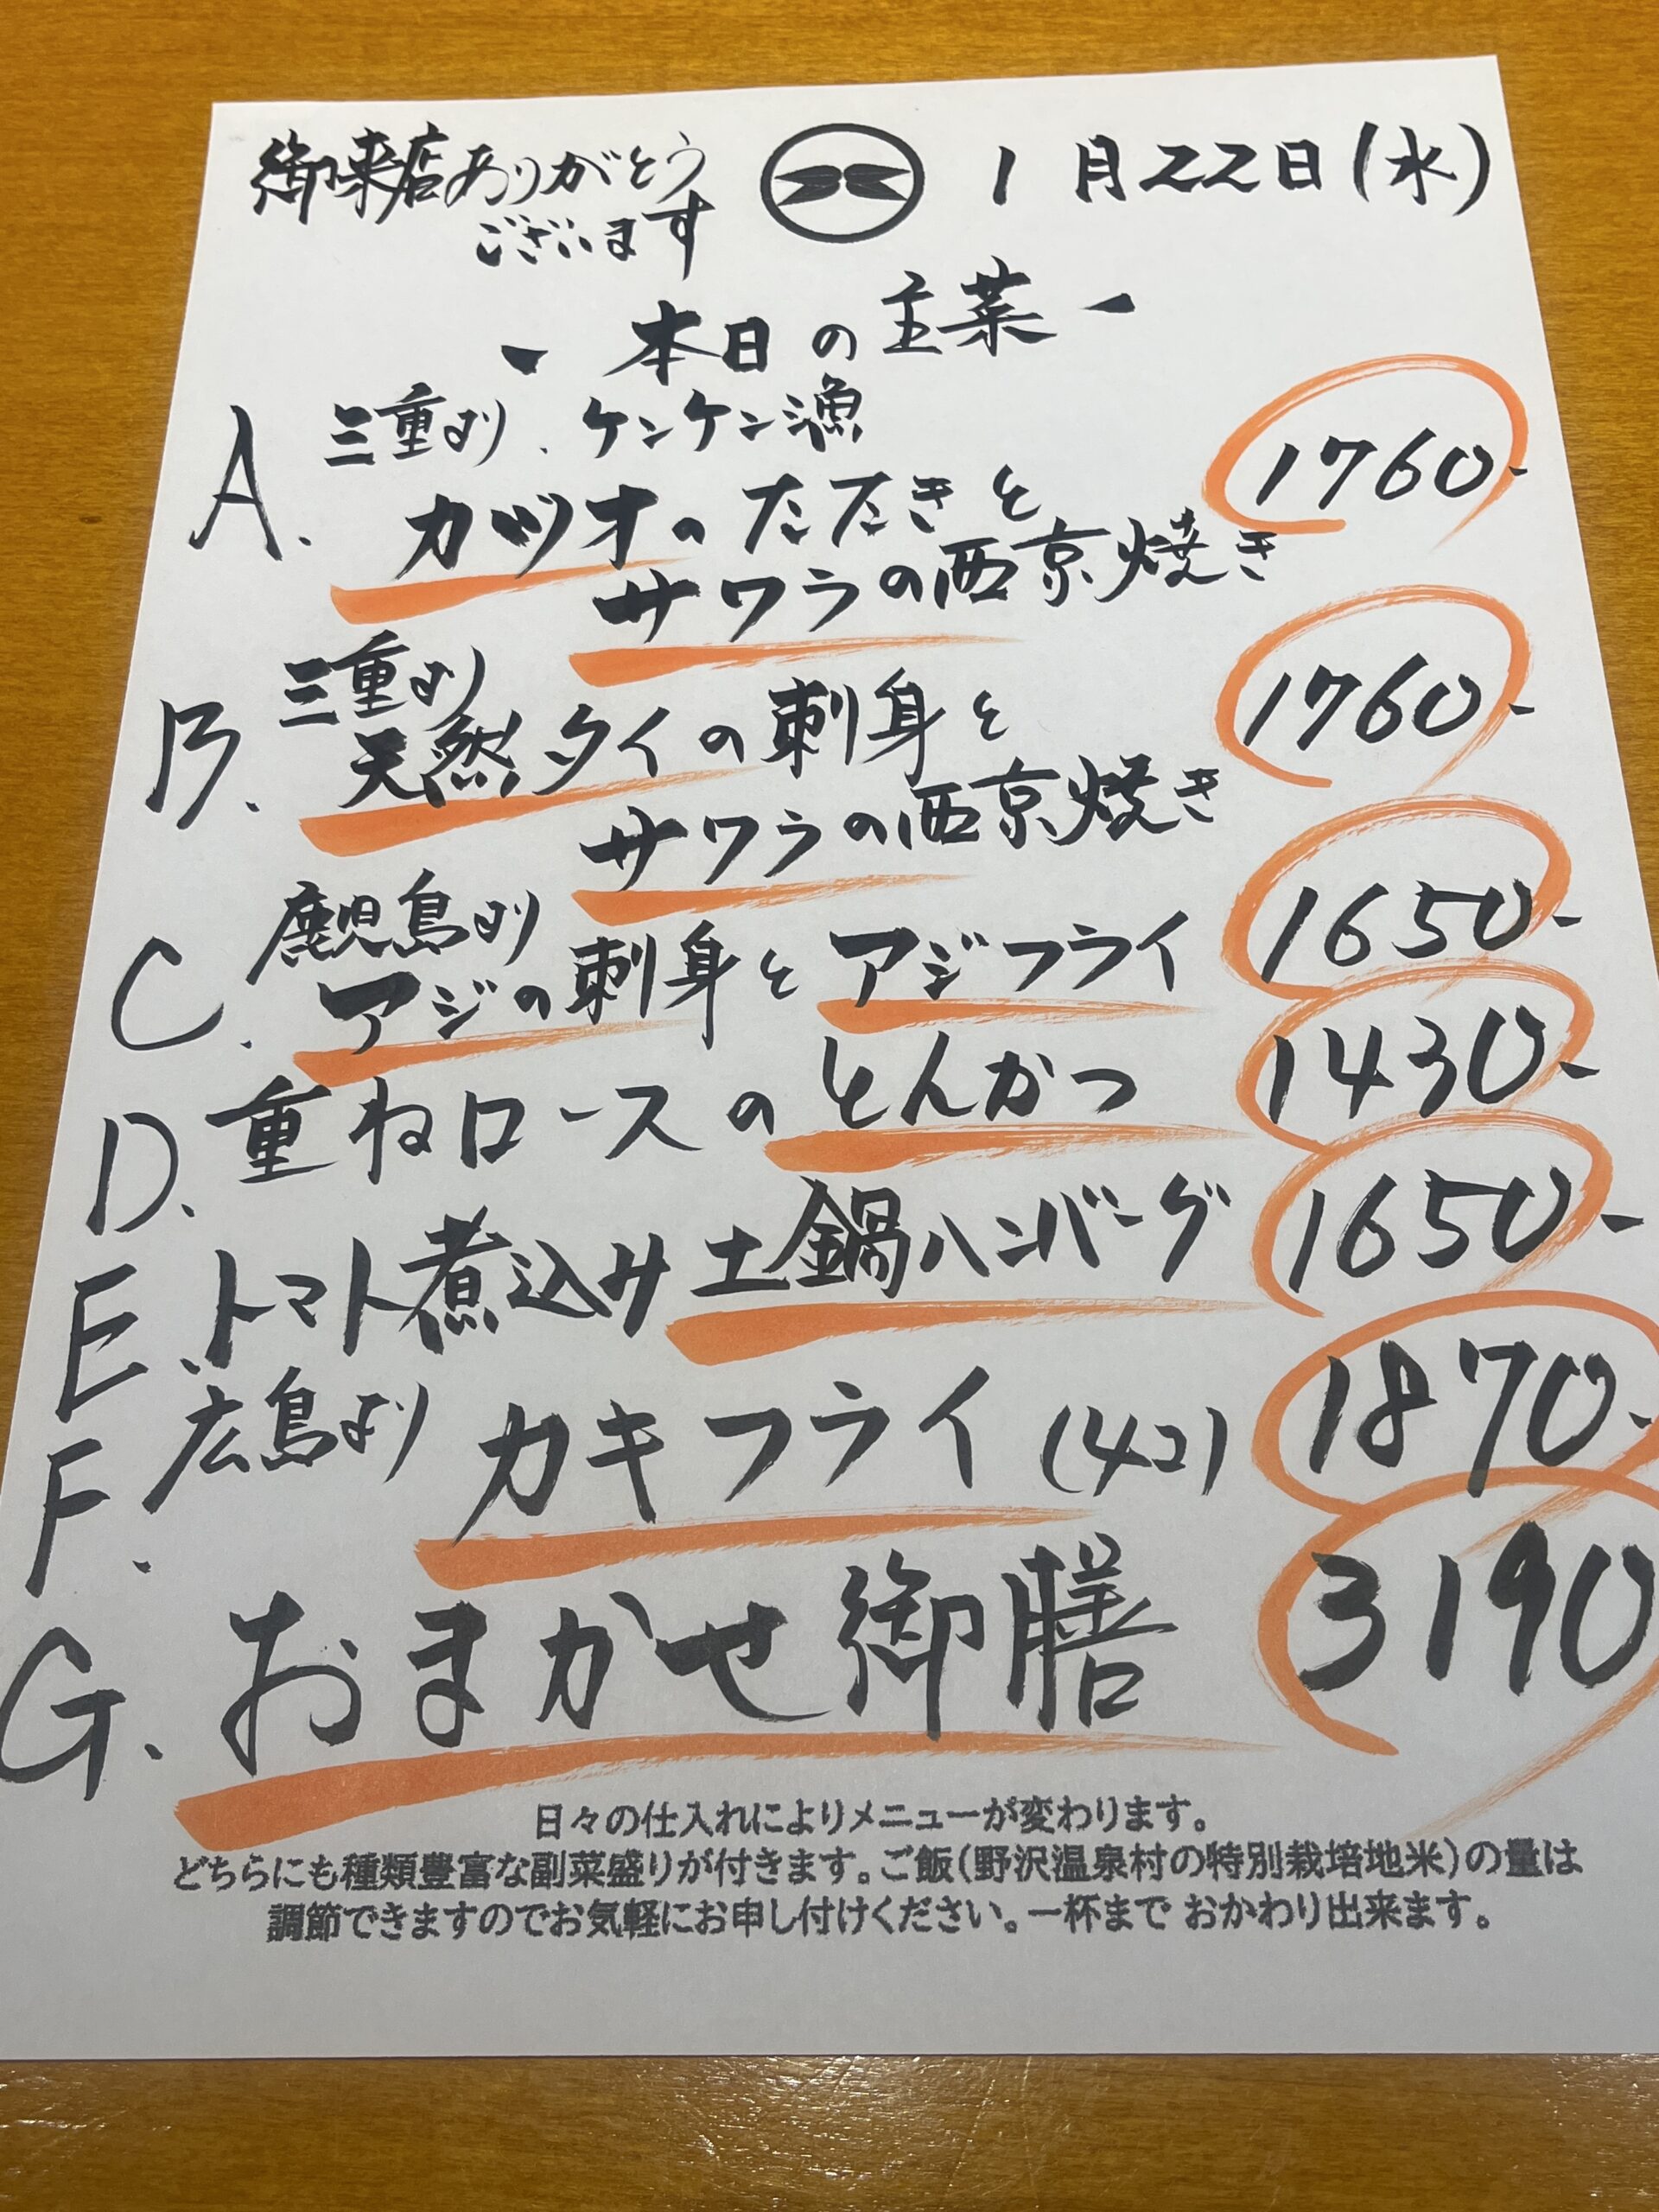 御来店ありがとう
ございます
1月22日(水)
- 本日の主菜 -
A. 三重より、ケンケン漁
カツオのたたきと
サワラの西京焼き
1760-
B. 三重より
天然タイの刺身と
サワラの西京焼き
1760-
C. 鹿児島より
アジの刺身とアジフライ
1650-
D. 重ねロースのとんかつ 1430-
E. トマト煮込み土鍋ハンバーグ 1650-
F. 広島より カキフライ(4コ) 1870-
G. おまかせ御膳 3190
日々の仕入れによりメニューが変わります。
どちらにも種類豊富な副菜盛りが付きます。ご飯(野沢温泉村の特別栽培地米)の量は
調節できますのでお気軽にお申し付けください。一杯まで おかわり出来ます。